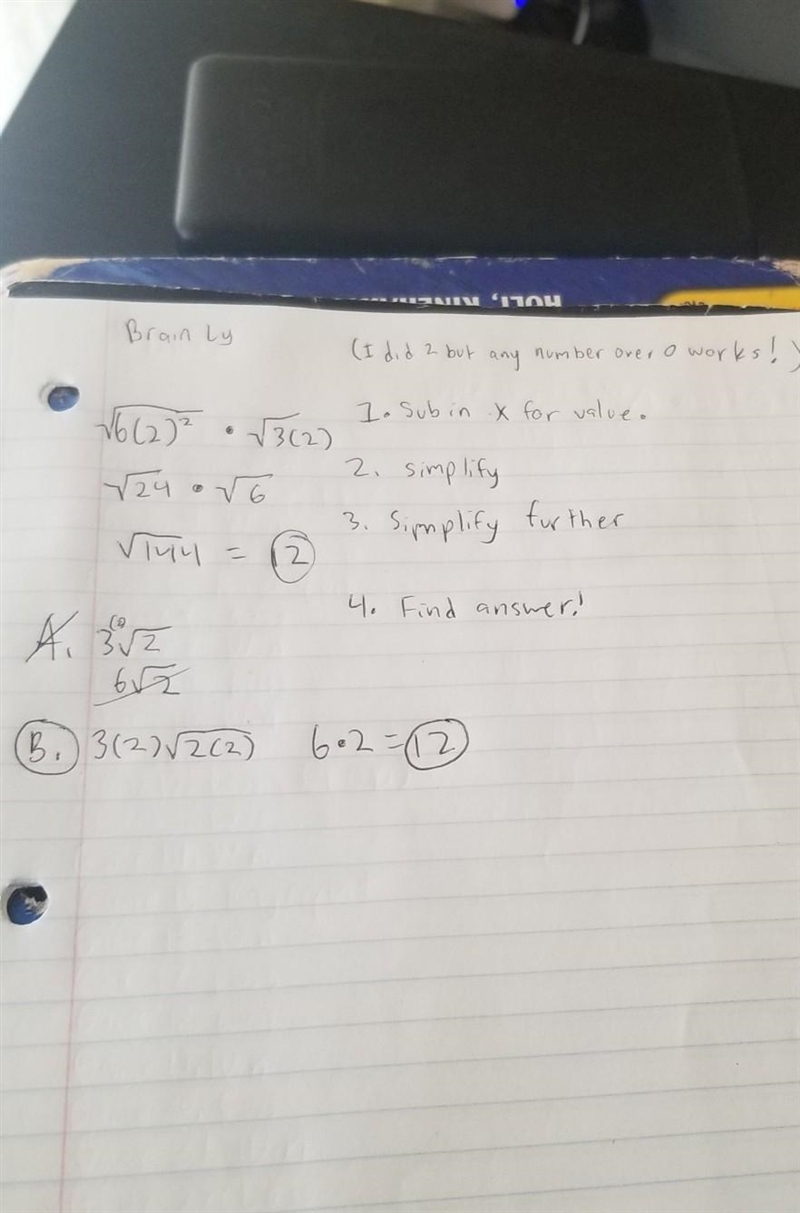 Brainly
(I did 2 but any number over 0 works!)
√6(2)² • √3(2)
1. Sub in x for value.
√24 • √6
2. simplify
√144 = 12
3. Simplify further
4. Find answer!
A. 3√2
6√2
B. 3(2)√2(2) 6•2=12